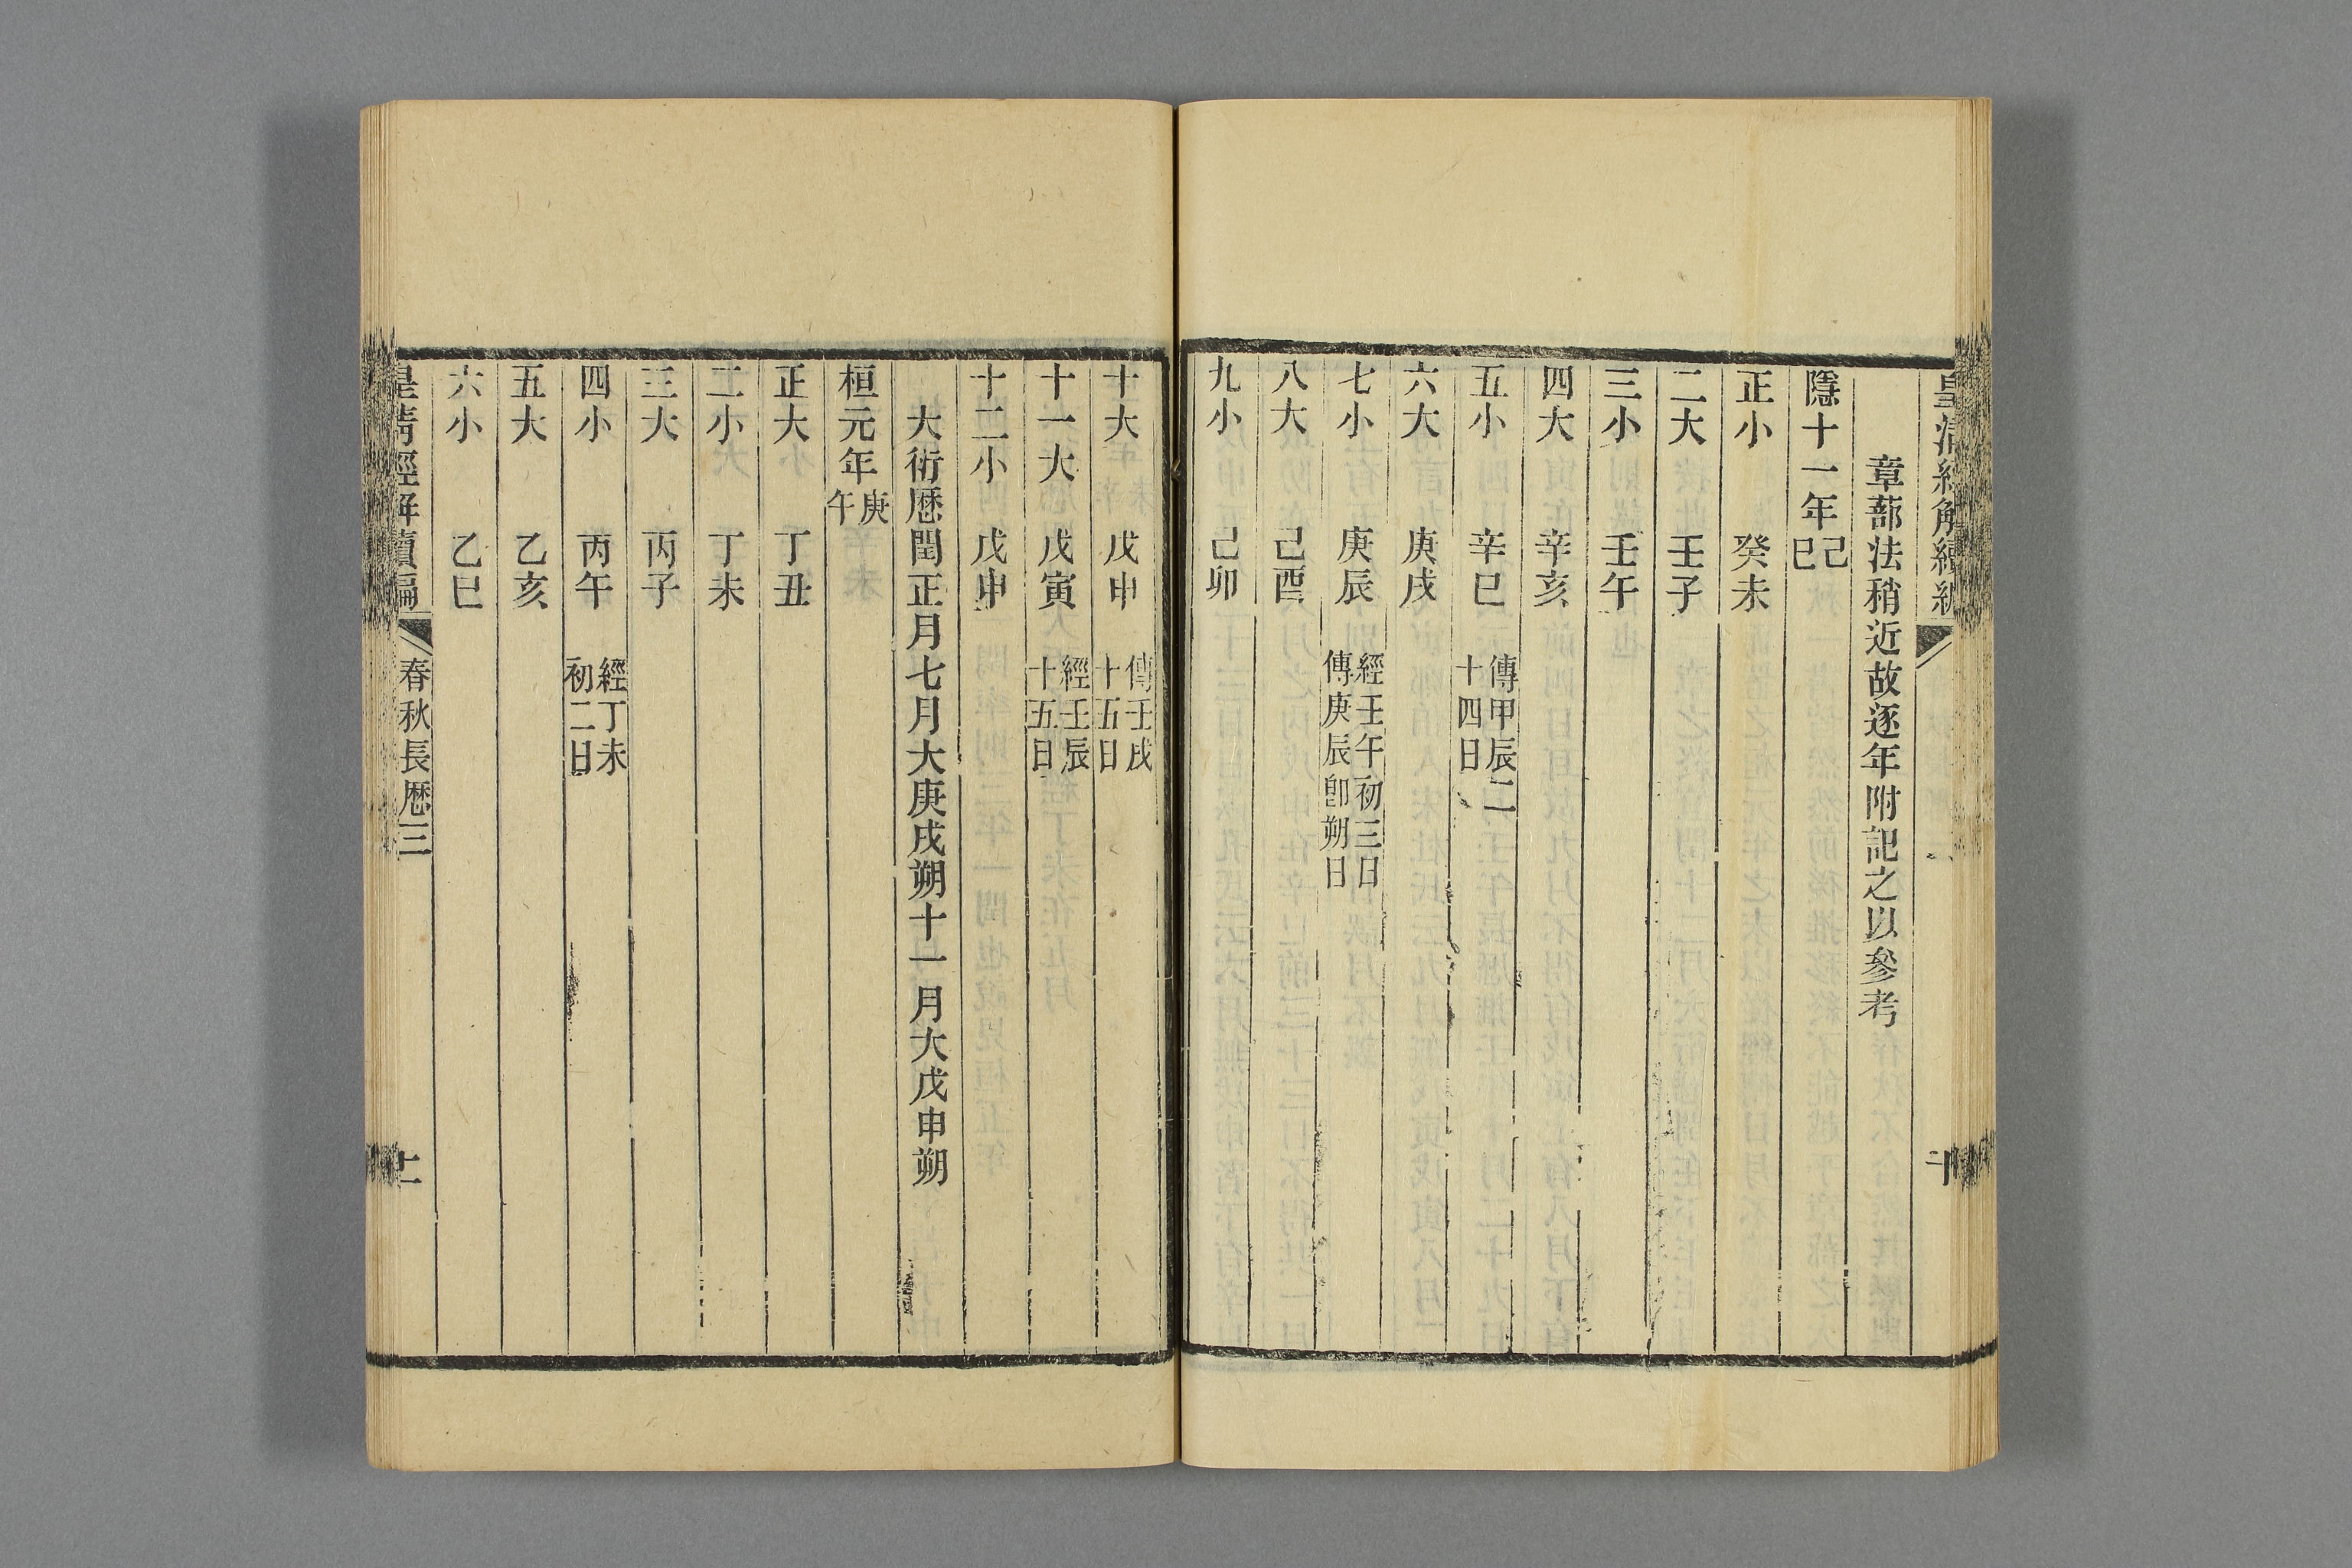 皇清經解續編
十
章蔀法稍近故逐年附記之以參考
隱十一年己巳
正小 癸未
二大 壬子
三小 壬午
四大 辛亥
五小 辛巳 傳甲辰二十四日
六大 庚戌
七小 庚辰 經壬午初三日傳庚辰卽朔日
八大 己酉
九小 己卯
十大 戊申 傳壬戌十五日
十一大 戊寅 經壬辰十五日
十二小 戊申
大衍厯閏正月七月大庚戌朔十一月大戊申朔
桓元年庚午
正大 丁丑
二小 丁未
三大 丙子
四小 丙午 經丁未初二日
五大 乙亥
六小 乙巳
皇清經解續編 春秋長厯三